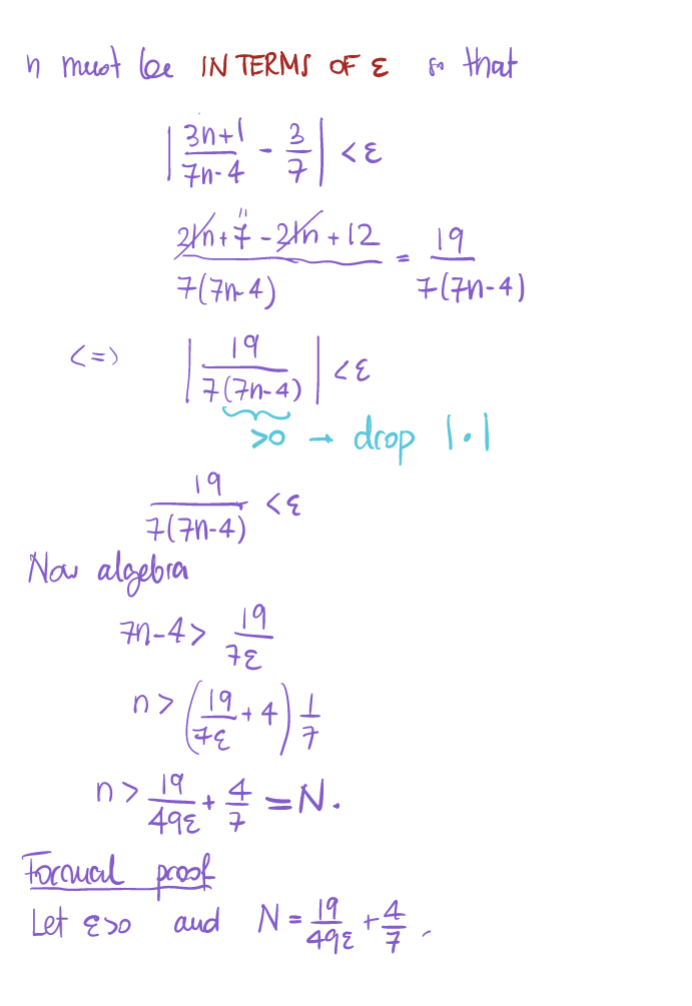 n must be IN TERMS OF ε so that
| (3n+1)/(7n-4) - 3/7 | < ε
(21n + 7 - 21n + 12)/(7(7n-4)) = 19/(7(7n-4))
<=> | 19/(7(7n-4)) | < ε
>0 → drop |·|
19/(7(7n-4)) < ε
Now algebra
7n-4 > 19/(7ε)
n > (19/(7ε) + 4) 1/7
n > 19/(49ε) + 4/7 = N.
Formal proof
Let ε>0 and N = 19/(49ε) + 4/7.